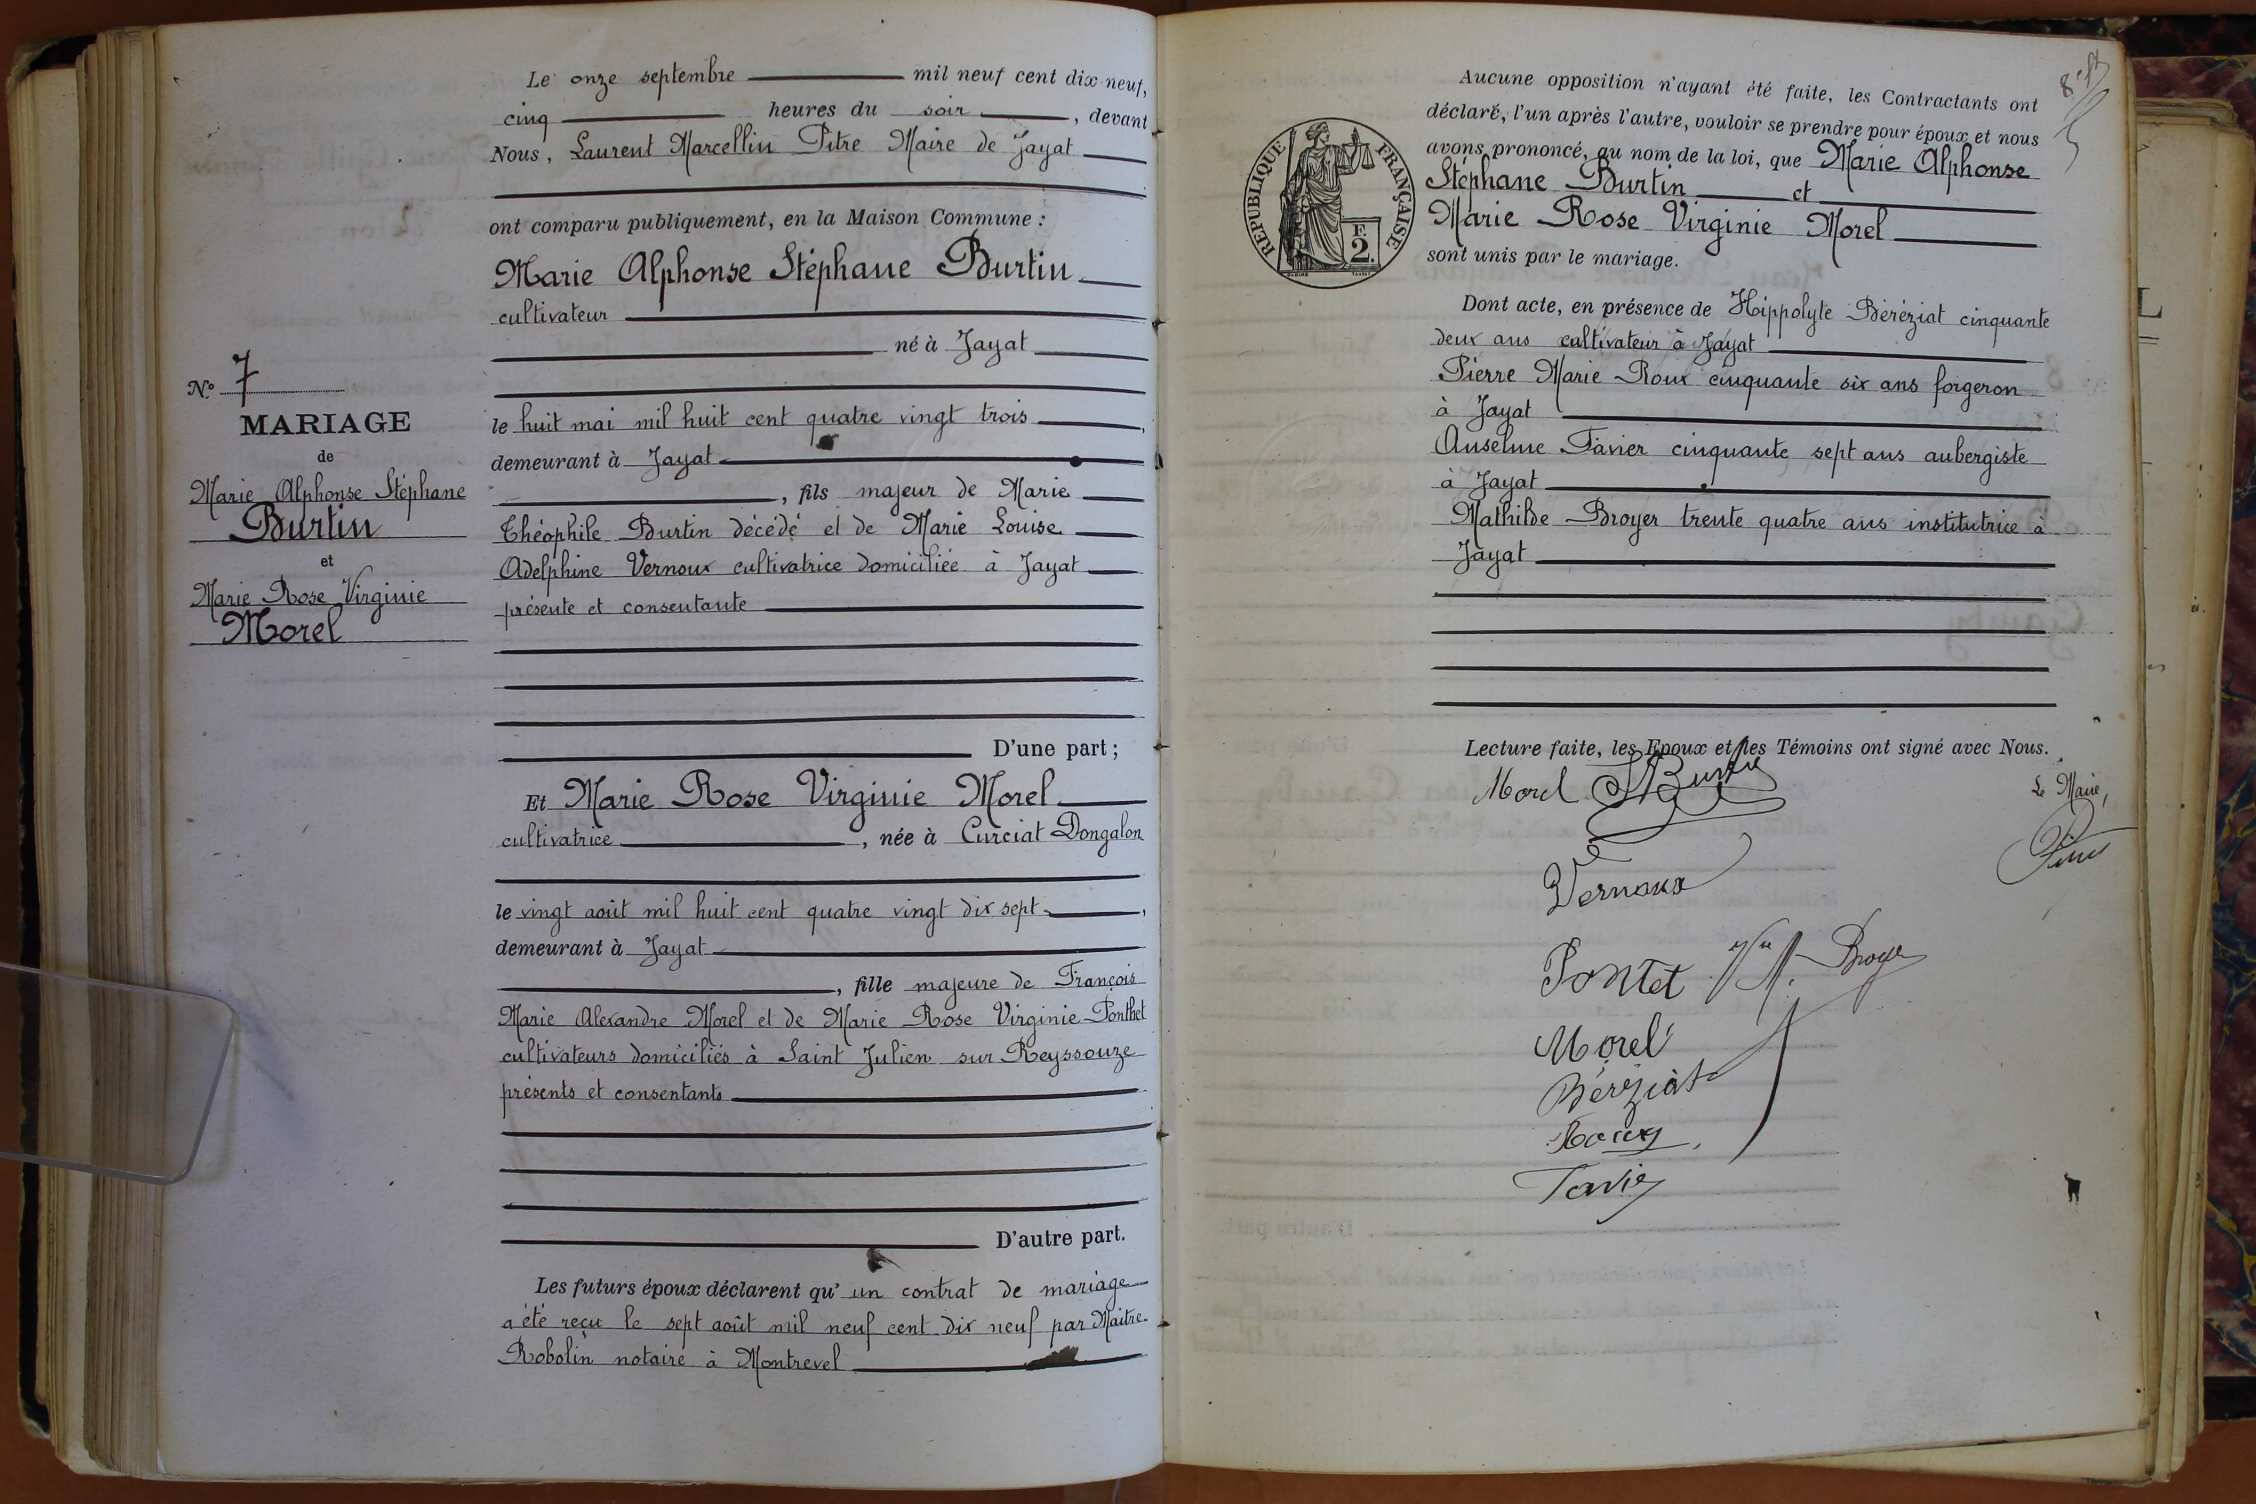 Le onze septembre mil neuf cent dix-neuf,
cinq heures du soir, devant
Nous, Laurent Marcellin Pitre Maire de Jayat
ont comparu publiquement, en la Maison Commune :
Marie Alphonse Stéphane Burtin
cultivateur
né à Jayat
le huit mai mil huit cent quatre vingt trois,
demeurant à Jayat
, fils majeur de Marie
Théophile Burtin décédé et de Marie Louise
Adelphine Vernoux cultivatrice domiciliée à Jayat
présente et consentante
D'une part ;
Et Marie Rose Virginie Morel
cultivatrice, née à Curciat Dongalon
le vingt août mil huit cent quatre vingt dix sept,
demeurant à Jayat
, fille majeure de François
Marie Alexandre Morel et de Marie Rose Virginie Ponthet
cultivateurs domiciliés à Saint Julien sur Reyssouze
présents et consentants
D'autre part.
Les futurs époux déclarent qu'un contrat de mariage
a été reçu le sept août mil neuf cent dix neuf par Maitre
Robolin notaire à Montrevel
No. 7
MARIAGE
de
Marie Alphonse Stéphane
Burtin
et
Marie Rose Virginie
Morel
8e ft
RÉPUBLIQUE FRANÇAISE
F.
2.
Aucune opposition n'ayant été faite, les Contractants ont
déclaré, l'un après l'autre, vouloir se prendre pour époux, et nous
avons prononcé, au nom de la loi, que Marie Alphonse
Stéphane Burtin et
Marie Rose Virginie Morel
sont unis par le mariage.
Dont acte, en présence de Hippolyte Béréziat cinquante
deux ans cultivateur à Jayat
Pierre Marie Roux cinquante six ans forgeron
à Jayat
Anselme Favier cinquante sept ans aubergiste
à Jayat
Mathilde Broyer trente quatre ans institutrice à
Jayat
Lecture faite, les Epoux et les Témoins ont signé avec Nous.
Morel SBurtin
Le Maire,
Pitre
Vernoux
Pontet M. Broyer
Morel
Béréziat
Roux
Favier